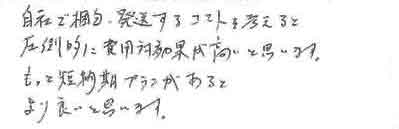 自社で梱包、発送するコストを考えると
圧倒的に費用対効果が高いと思います。
もっと短納期プランがあると
より良いと思います。